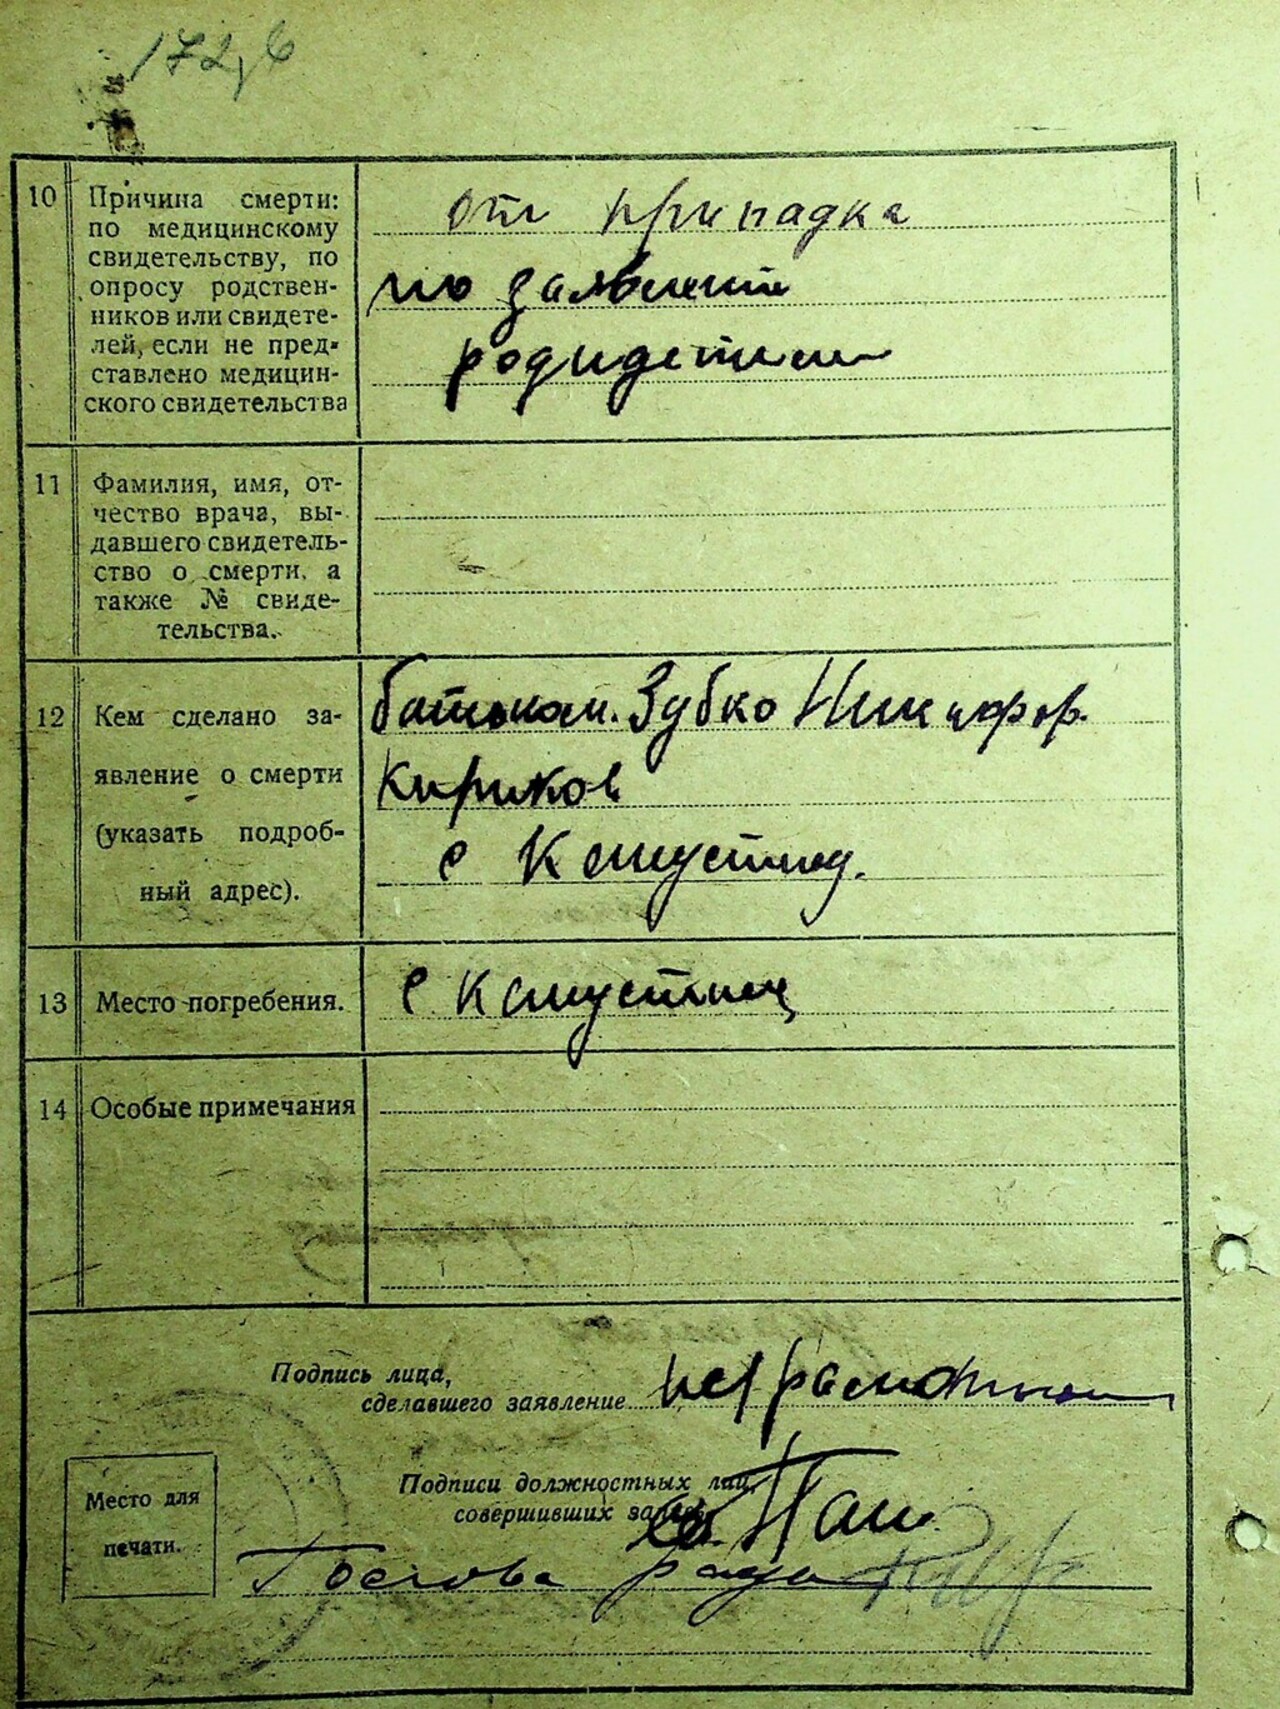 172,6
10 Причина смерти:
по медицинскому
свидетельству, по
опросу родствен-
ников или свидете-
лей, если не пред-
ставлено медицин-
ского свидетельства
от припадка
по
11 Фамилия, имя, от-
чество врача, вы-
давшего свидетель-
ство о смерти, а
также № свиде-
тельства.
12 Кем сделано за-
явление о смерти
(указать подроб-
ный адрес).
батьком. Зубко Никифор.
Кириков
с
13 Место погребения.
с
14 Особые примечания
Подпись лица,
сделавшего заявление
Подписи должностных лиц,
совершивших запись
Место для
печати.
Голова ради